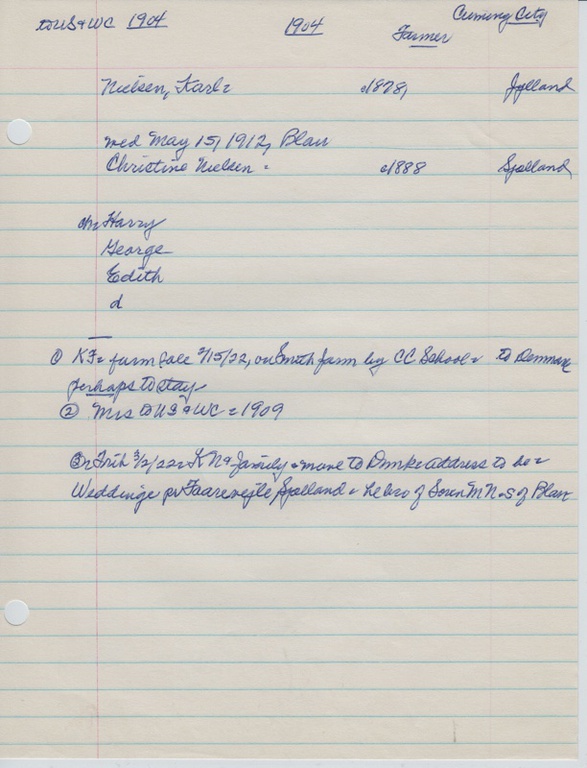 to US & WC 1904 1904 Cuming City
Farmer
Nielsen, Karl = c1878, Jylland
wed May 15, 1912, Blair
Christine Nielsen = c1888 Sjelland
ch = Harry
George
Edith
d
① KF = farm sale 2/15/22, on Smith farm by CC School = to Denmark
perhaps to stay
② Mrs to US & WC = 1909
③ = Trib 3/2/22 = KN & family = move to Dmk = address to be =
Weddinge pr Faarevejle Sjelland = he bro of Soren M N = s of Blair